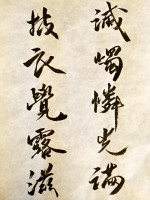 滅燭憐光滿
披衣覺露滋